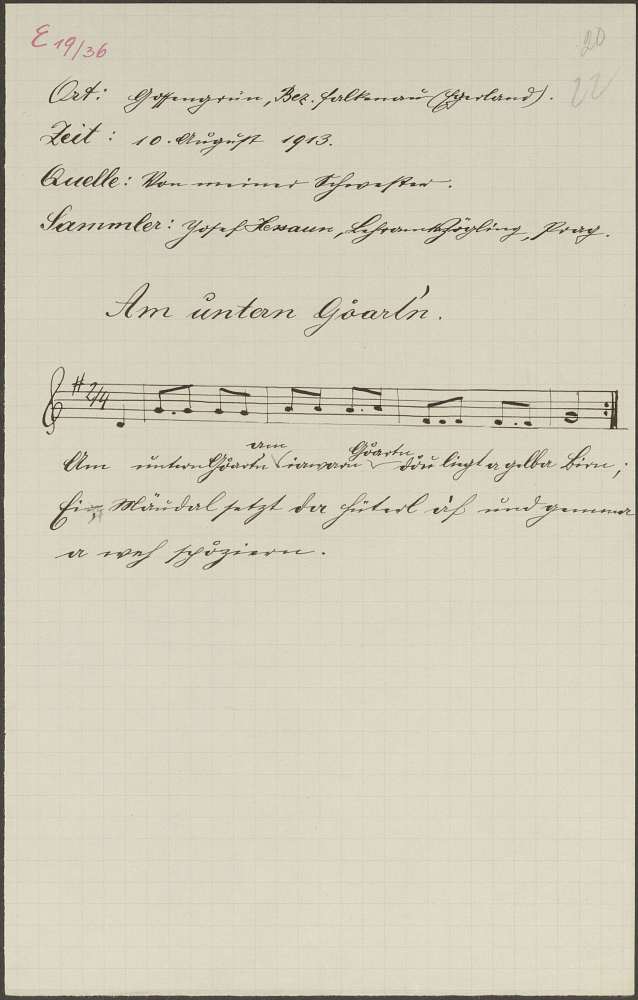 E 19/36
20
22
Ort: Gossengrün, Bez. Falkenau (Egerland).
Zeit: 10. August 1913.
Quelle: Von meiner Schwester.
Sammler: Josef Hessaun, Lehramtszögling, Prag.
Am untern Gåartn.
2/4
am Gåartn
Am untern Gåartn dåu liegt a gelba Birn;
Ei Mäudal setzt da Hüterl àf und gemma
a weh schpåziern.